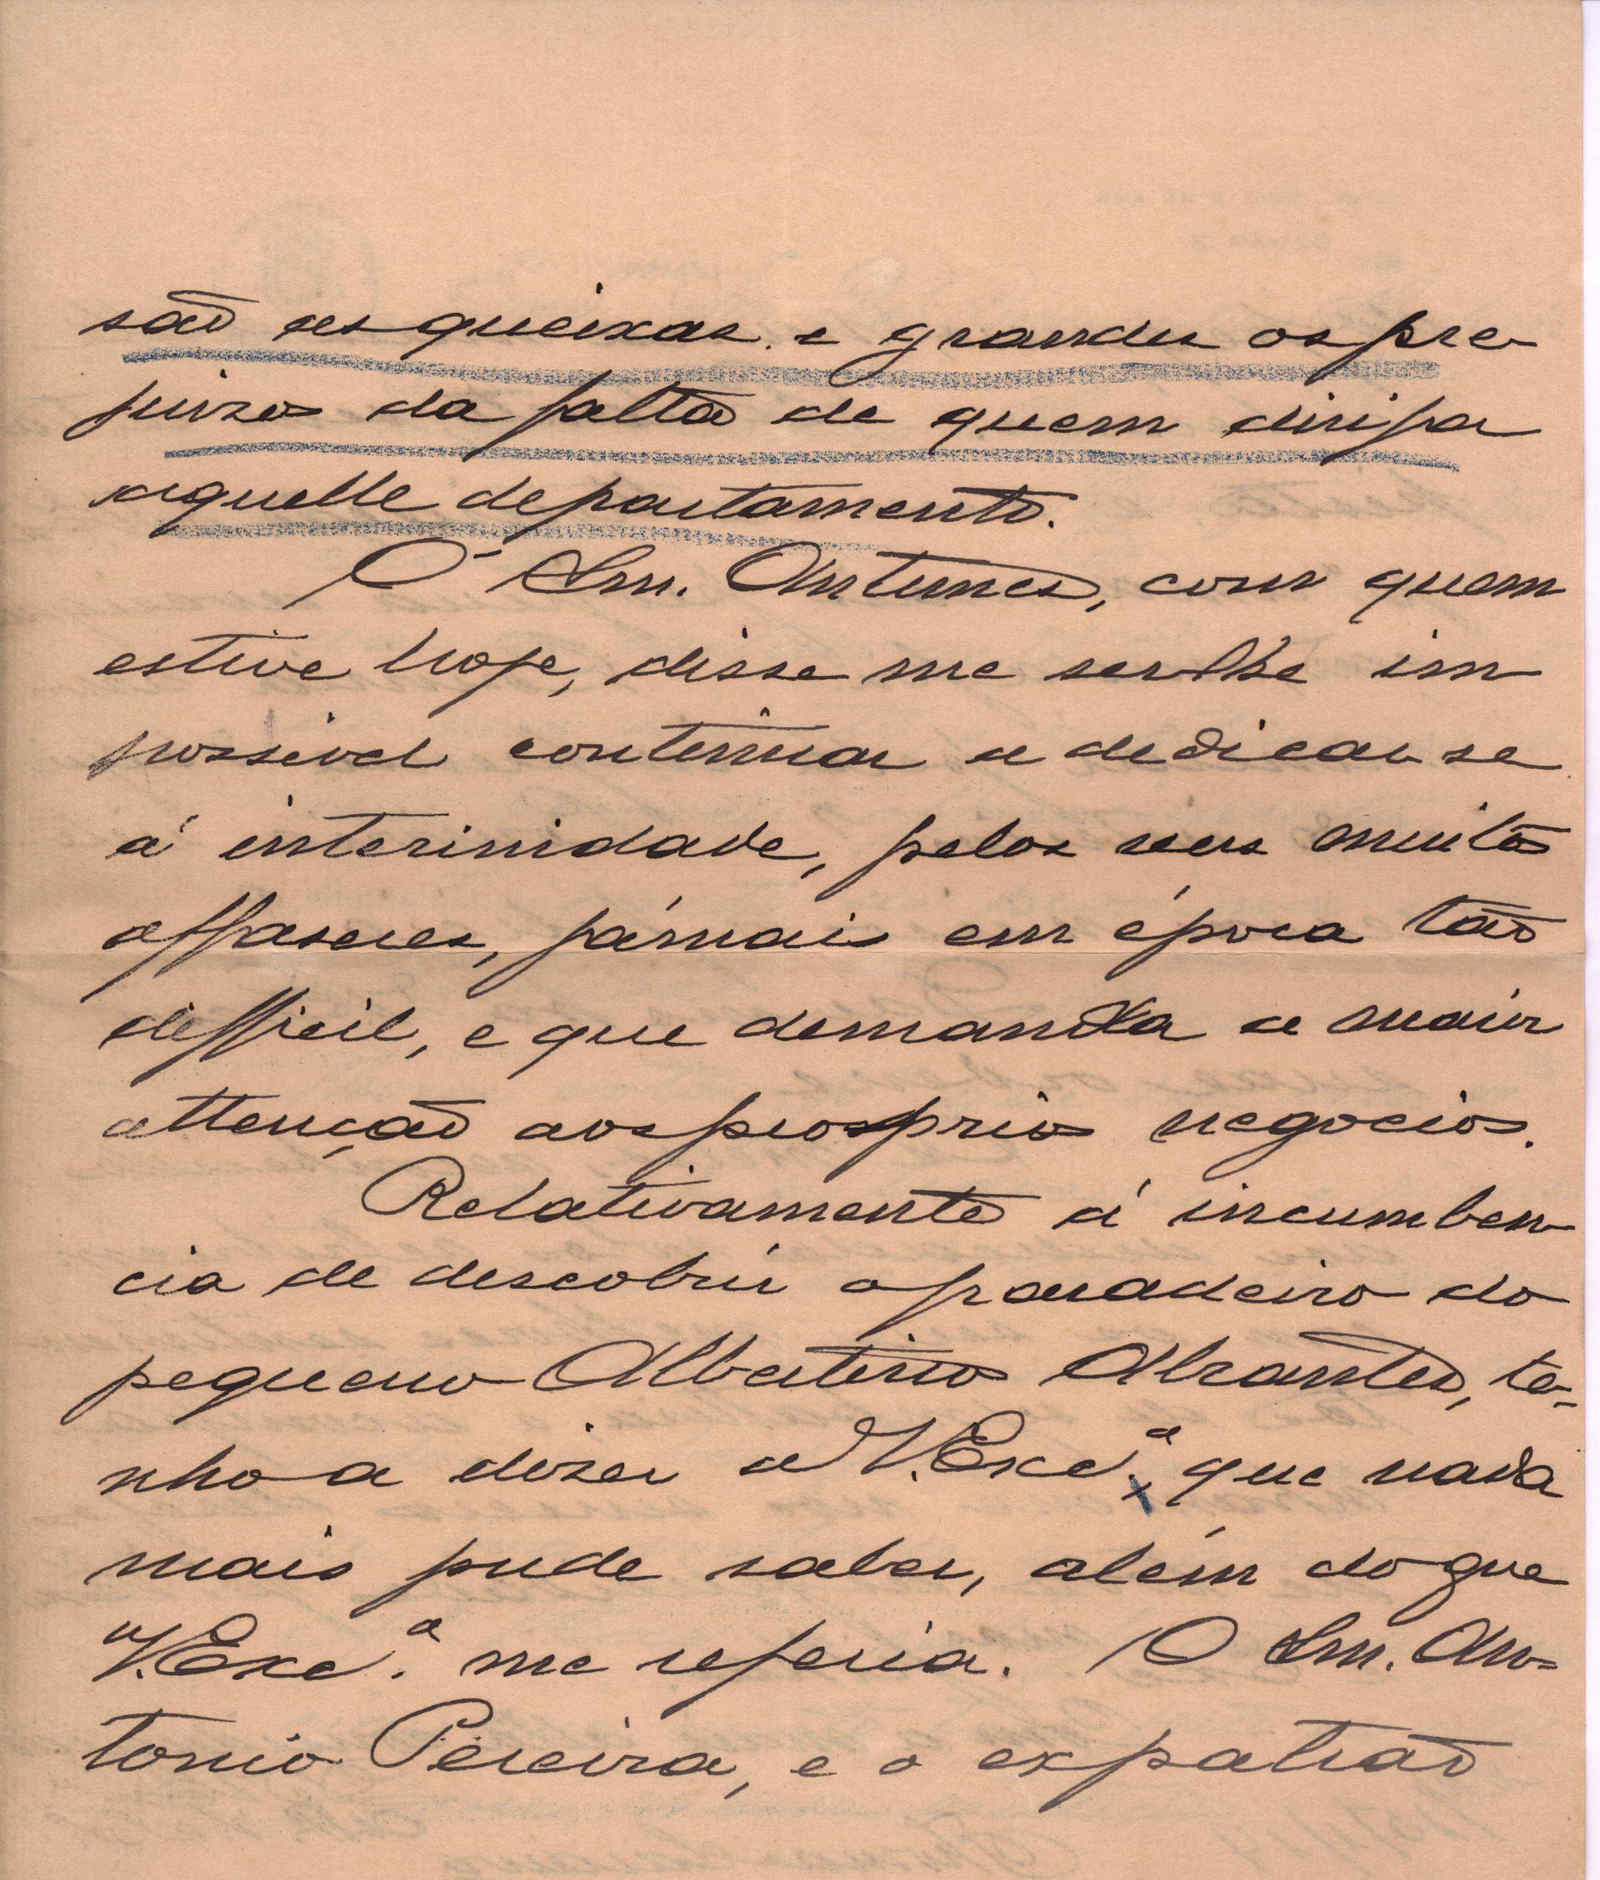 são as queixas e grandes os pre-
juizos da falta de quem dirija
aquelle departamento.
O Snr. Antunes, com quem
estive hoje, disse me ser lhe im
possivel continuar a dedicar se
á interinidade, pelos seus muitos
affaseres, jámais em época tão
difficil, e que demanda a maior
attenção aos prosprios negocios.
Relativamente á incumben-
cia de descobrir o paradeiro do
pequeno Albertino Abrantes, te-
nho a dizer a V. Excª. que nada
mais pude saber, além do que
V. Excª. me referia. O Snr. An-
tonio Pereira, e o expatrão